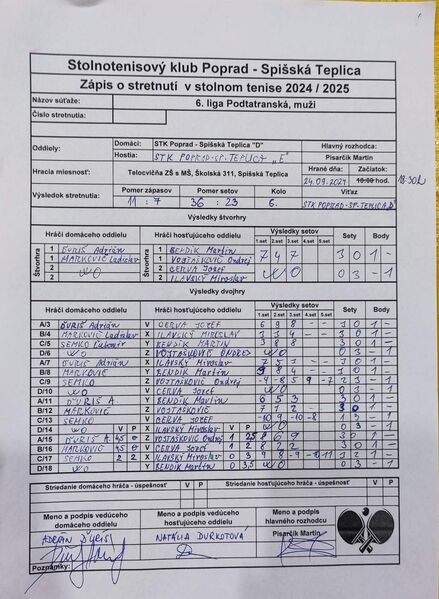 Stolnotenisový klub Poprad - Spišská Teplica
Zápis o stretnutí v stolnom tenise 2024 / 2025
Názov súťaže: 6. liga Podtatranská, muži
Číslo stretnutia:
Oddiely: Domáci: STK Poprad - Spišská Teplica "D" Hlavný rozhodca:
Hostia: STK POPRAD-SP.TEPLICA „E" Pisarčík Martin
Hracia miesnosť: Telocvičňa ZŠ s MŠ, Školská 311, Spišská Teplica Hrané dňa: Začiatok:
24.09.2024 18:30
Výsledok stretnutia: Pomer zápasov Pomer setov Kolo Víťaz
11 : 7 36 : 23 6. STK POPRAD-SP.TEPLICA D
Výsledky štvorhry
Hráči domáceho oddielu Hráči hosťujúceho oddielu Výsledky setov Sety Body
1.set 2.set 3.set 4.set 5.set
Štvorhra 1 ĎURIŠ Adrián 1 BENDÍK Martin 7 4 7 3 0 1 -
1 MARKOVIČ Ladislav 1 VOJTAŠKOVIČ Ondrej
2 WO 2 CERVA Jozef WO 0 3 - 1
2 2 ILAVSKÝ Miroslav
Výsledky dvojhry
Hráči domáceho oddielu Hráči hosťujúceho oddielu Výsledky setov Sety Body
1.set 2.set 3.set 4.set 5.set
A/3 ĎURIŠ Adrián V CERVA JOZEF 6 9 8 - - 3 0 1 -
B/4 MARKOVIČ Ladislav X ILAVSKÝ MIROSLAV 3 0 1 -
C/5 SEMKO Ľubomír Y BENDÍK MARTIN 3 8 8 3 0 1 -
D/6 WO Z VOJTAŠKOVIČ ONDREJ WO 0 3 - 1
A/7 ĎURIŠ Adrián X ILAVSKÝ Miroslav 3 0 1 -
B/8 MARKOVIČ Y BENDÍK Martin 9 8 4 3 0 1 -
C/9 SEMKO Z VOJTAŠKOVIČ Ondrej
D/10 WO V CERVA Jozef WO 0 3 - 1
A/11 ĎURIŠ A. Y BENDÍK Martin 6 5 3 3 0 1 -
B/12 MARKOVIČ Z VOJTAŠKOVIČ 7 7 2 3 0 1 -
C/13 SEMKO V CERVA Jozef 1 3 - 1
D/14 WO V P X ILAVSKÝ Miroslav V P WO 0 3 - 1
A/15 ĎURIŠ A. 4,5 0 Z VOJTAŠKOVIČ Ondrej 1 2,5 8 6 9 3 0 1 -
B/16 MARKOVIČ 4,5 0 V CERVA Jozef 1 2 6 2 2 3 0 1 -
C/17 SEMKO 2 2 X ILAVSKÝ Miroslav
D/18 WO Y BENDÍK Martin 0 3,5 WO 0 3 - 1
Striedanie domáceho hráča - úspešnosť V P Striedanie hosťujúceho hráča - úspešnosť V P
Meno a podpis vedúceho domáceho oddielu Meno a podpis vedúceho hosťujúceho oddielu Meno a podpis hlavného rozhodcu
ADRIÁN ĎURIŠ NATÁLIA DURKOTOVÁ Pisarčík Martin
Poznámky: